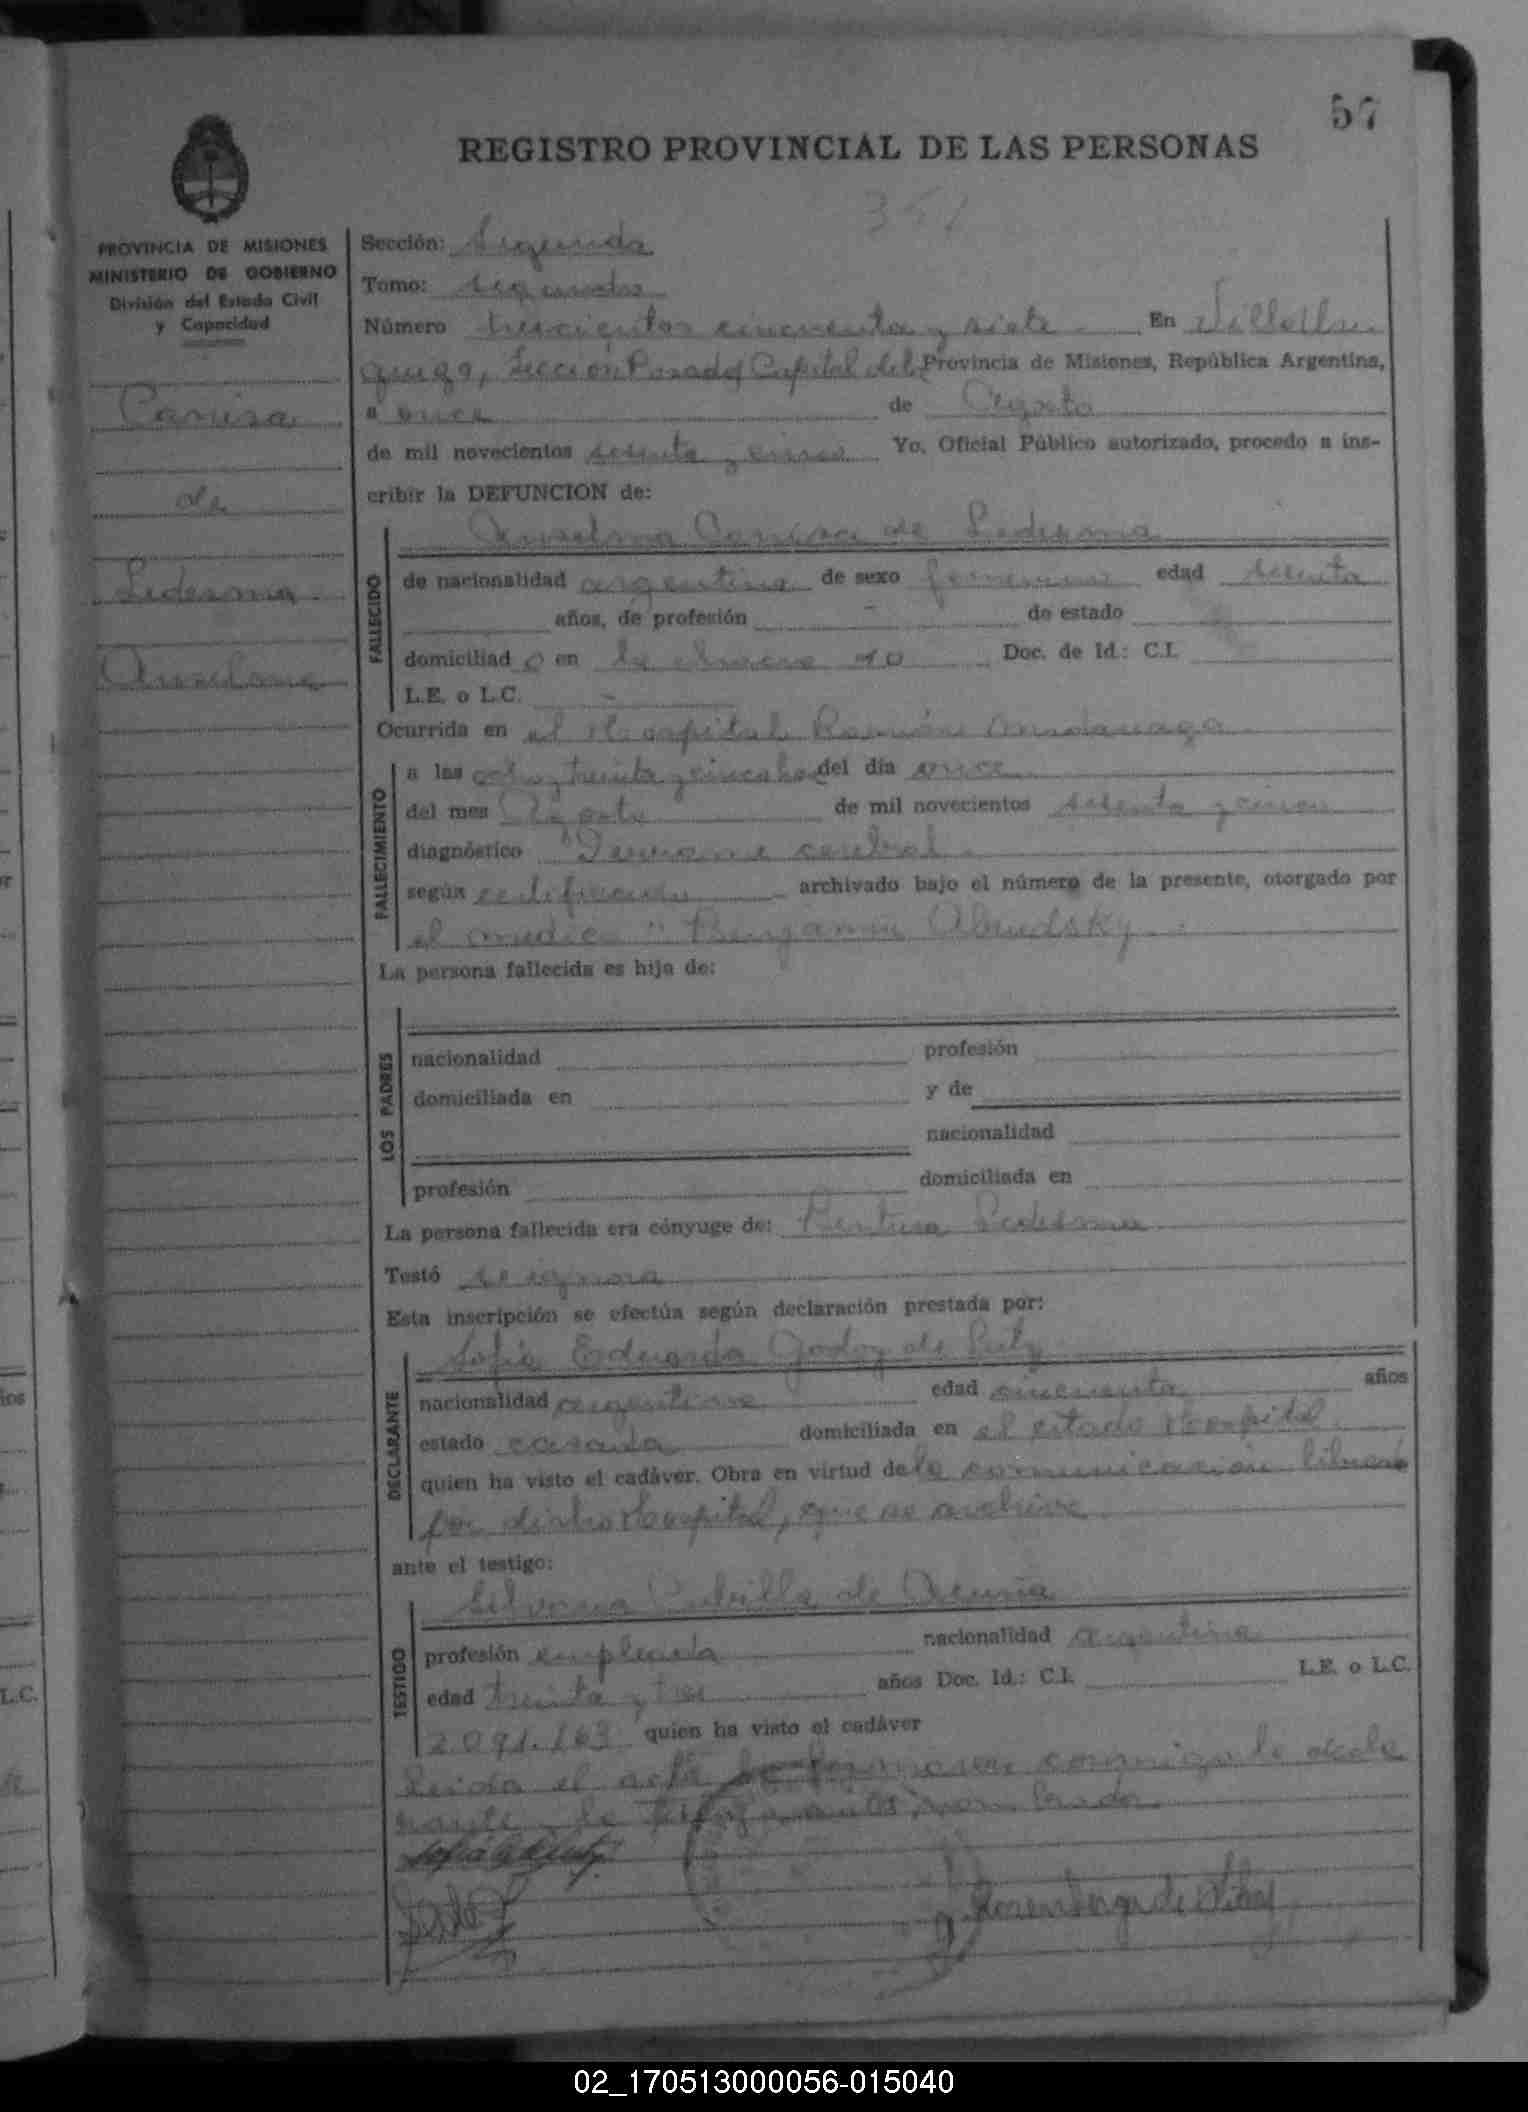 57
REGISTRO PROVINCIAL DE LAS PERSONAS
357
PROVINCIA DE MISIONES
MINISTERIO DE GOBIERNO
División del Estado Civil
y Capacidad
Canisa
de
Ledesma
Anselma
Sección: Segunda
Tomo: segundo
Número trescientos cincuenta y siete En Villa Lan
Sección Posadas Capital de la Provincia de Misiones, República Argentina,
a once de Agosto
de mil novecientos sesenta y cinco Yo, Oficial Público autorizado, procedo a ins-
cribir la DEFUNCION de:
Anselma Canisa de Ledesma
FALLECIDO
de nacionalidad argentina de sexo femenino edad sesenta
años, de profesión - de estado
domiciliad o en Doc. de Id.: C.I.
L.E. o L.C. -
Ocurrida en el Hospital Ramón Madariaga
FALLECIMIENTO
a las ocho y treinta y cinco del día once
del mes Agosto de mil novecientos sesenta y cinco
diagnóstico "Derrame cerebral
según certificado archivado bajo el número de la presente, otorgado por
el medico Benjamin
La persona fallecida es hija de:
LOS PADRES
nacionalidad profesión
domiciliada en y de
nacionalidad
profesión domiciliada en
La persona fallecida era cónyuge de: Ventura Ledesma
Testó se ignora
Esta inscripción se efectúa según declaración prestada por:
DECLARANTE
Sofia Eduarda Godoy de
nacionalidad argentina edad cincuenta años
estado casada domiciliada en el citado Hospital
quien ha visto el cadáver. Obra en virtud de la comunicacion
por dicho Hospital, que se archiva
ante el testigo:
TESTIGO
de Acuña
profesión empleada nacionalidad argentina
edad treinta y tres años Doc. Id.: C.I. L.E. o L.C.
2.091.163 quien ha visto el cadáver
Leida el acta conmigo la decla
rante y la
02_170513000056-015040